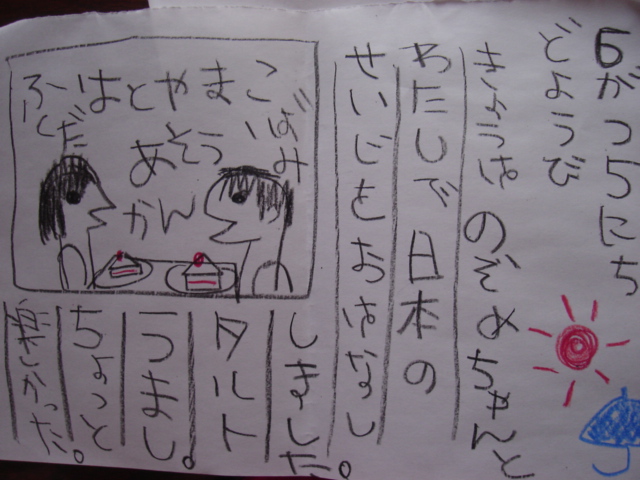 6がつ5にち
どようび
きょうは のぞめちゃんと
わたしで 日本の
せいじをおはなし
しました。
タルト
うまし。
ちょっと
しかった。
こいずみ
はとやま
ふくだ
あそう
かん